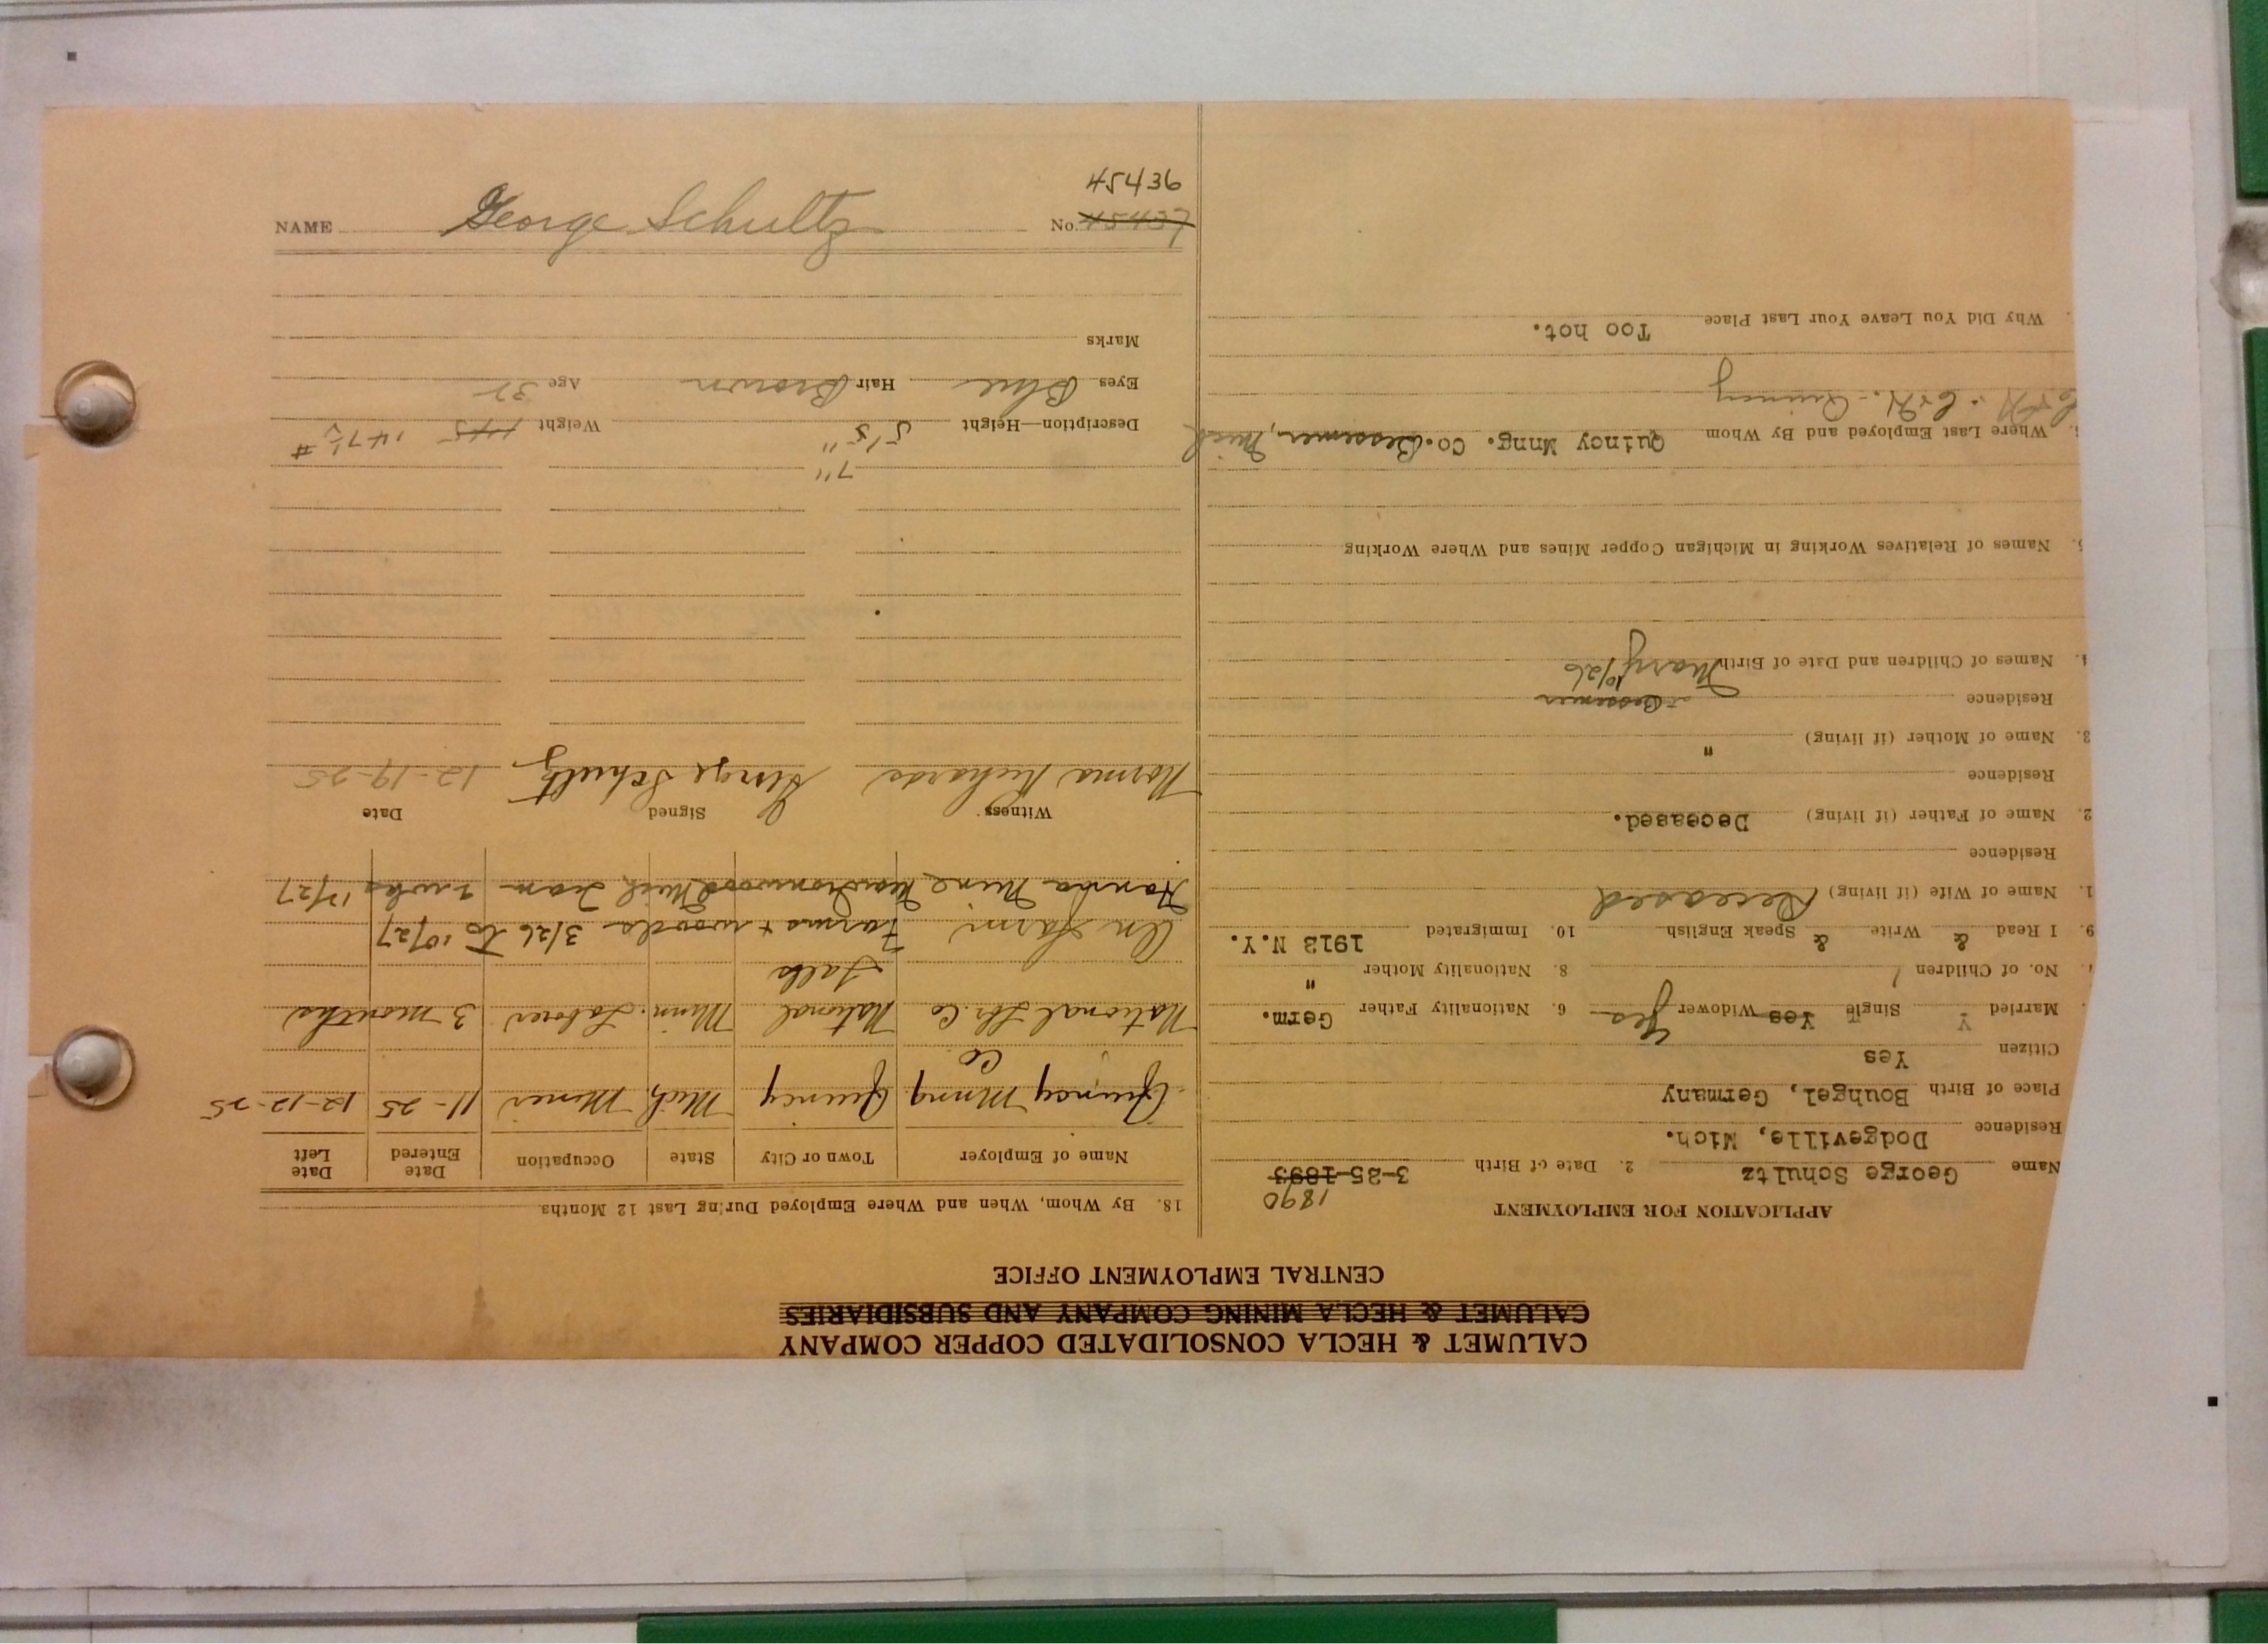 CALUMET & HECLA CONSOLIDATED COPPER COMPANY
CALUMET & HECLA MINING COMPANY AND SUBSIDIARIES
CENTRAL EMPLOYMENT OFFICE
APPLICATION FOR EMPLOYMENT
1890
Name George Schultz 2. Date of Birth 3-25-1893
Residence Dodgeville, Mich.
Place of Birth Bouhgel, Germany
Citizen Yes
Married Single Yes Widower Yes 6. Nationality Father Germ.
No. of Children 1 8. Nationality Mother "
9. I Read & Write & Speak English 10. Immigrated 1913 N.Y.
1. Name of Wife (if living) Deceased
Residence
2. Name of Father (if living) Deceased.
Residence
3. Name of Mother (if living) "
Residence Bessemer
4. Names of Children and Date of Birth Mary 10/26
5. Names of Relatives Working in Michigan Copper Mines and Where Working
Where Last Employed and By Whom Quincy Mnng. Co. Bessemer, Mich
C & H. - C & H. - Quincy
Why Did You Leave Your Last Place Too hot.
18. By Whom, When and Where Employed During Last 12 Months
Name of Employer Town or City State Occupation Date Entered Date Left
Quincy Mnng Co Quincy Mich Miner 11-25 12-12-25
National Lbr. Co National Falls Minn. Laborer 3 months
On farm Farms + woods 3/26 to 10/27
Mine Ironwood Mich 2 wks 11/27
Witness Signed Date
Norma Richards George Schultz 12-19-25
7"
Description—Height 5'5" Weight 145 147½ #
Eyes Blue Hair Brown Age 32
Marks
NAME George Schultz No. 45437
45436